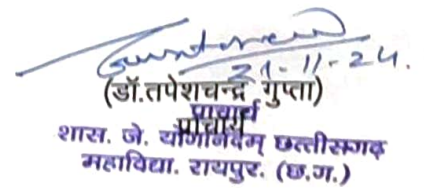 21-11-24.
(डॉ.तपेशचन्द्र गुप्ता)
प्राचार्य
प्राचार्य
शास. जे. योगानंदम् छत्तीसगढ़
महाविद्या. रायपुर. (छ.ग.)